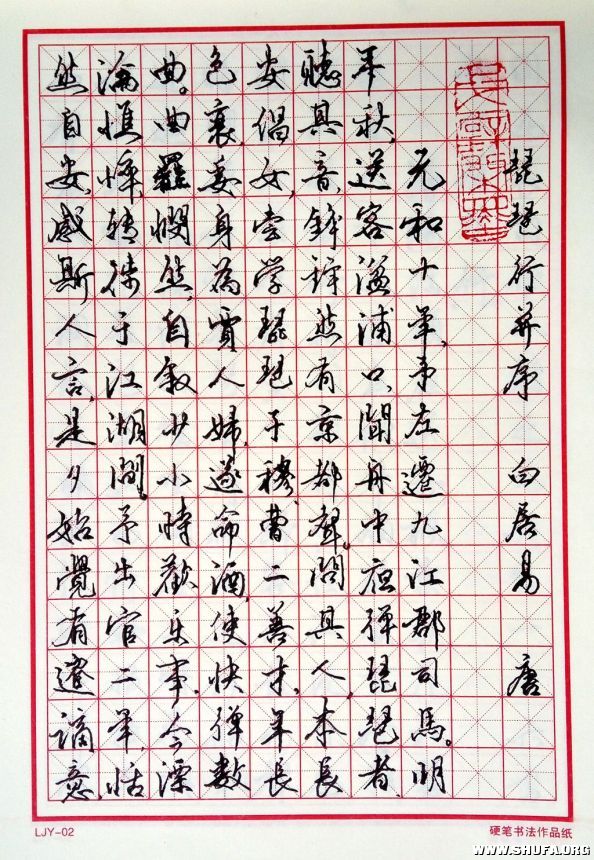 琵琶行并序 白居易 唐
元和十年,予左遷九江郡司馬。明
年秋,送客湓浦口,聞舟中夜彈琵琶者,
聽其音,錚錚然有京都聲。問其人,本長
安倡女,嘗學琵琶于穆、曹二善才,年長
色衰,委身為賈人婦,遂命酒,使快彈數
曲。曲罷憫然,自敘少小時歡樂事,今漂
淪憔悴,轉徙于江湖間。予出官二年,恬
然自安,感斯人言,是夕始覺有遷謫意
LJY-02
硬笔书法作品纸
WWW.SHUFA.ORG